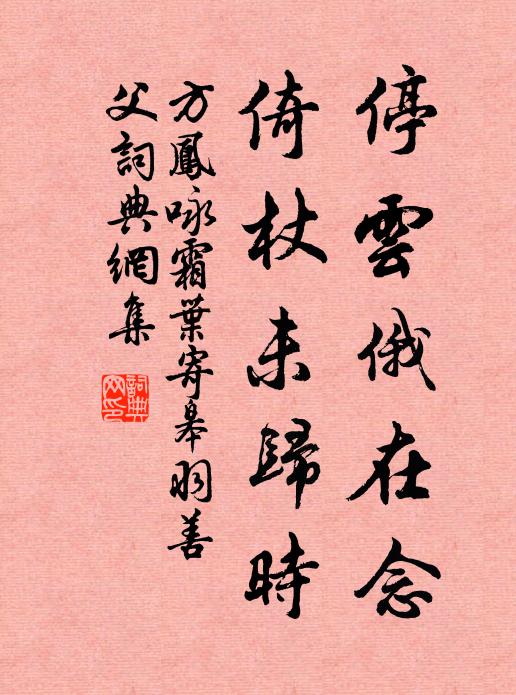 停雲俄在念
倚杖未歸時
方鳳咏霜葉寄皋羽善
父詞典網集
詞典网印